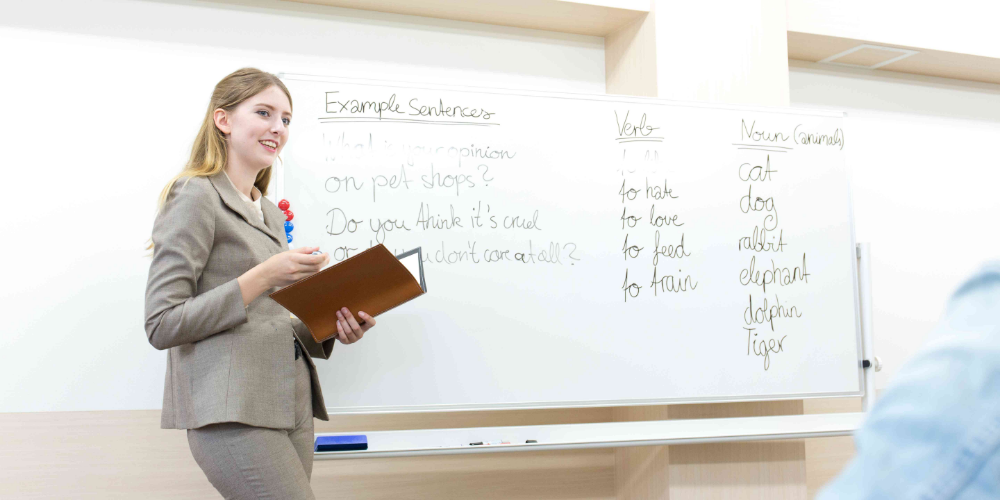 Example Sentences
What is your opinion
on pet shops?
Do you think it's cruel
or do you don't care at all?
Verb
to hate
to love
to feed
to train
Noun (animals)
cat
dog
rabbit
elephant
dolphin
Tiger